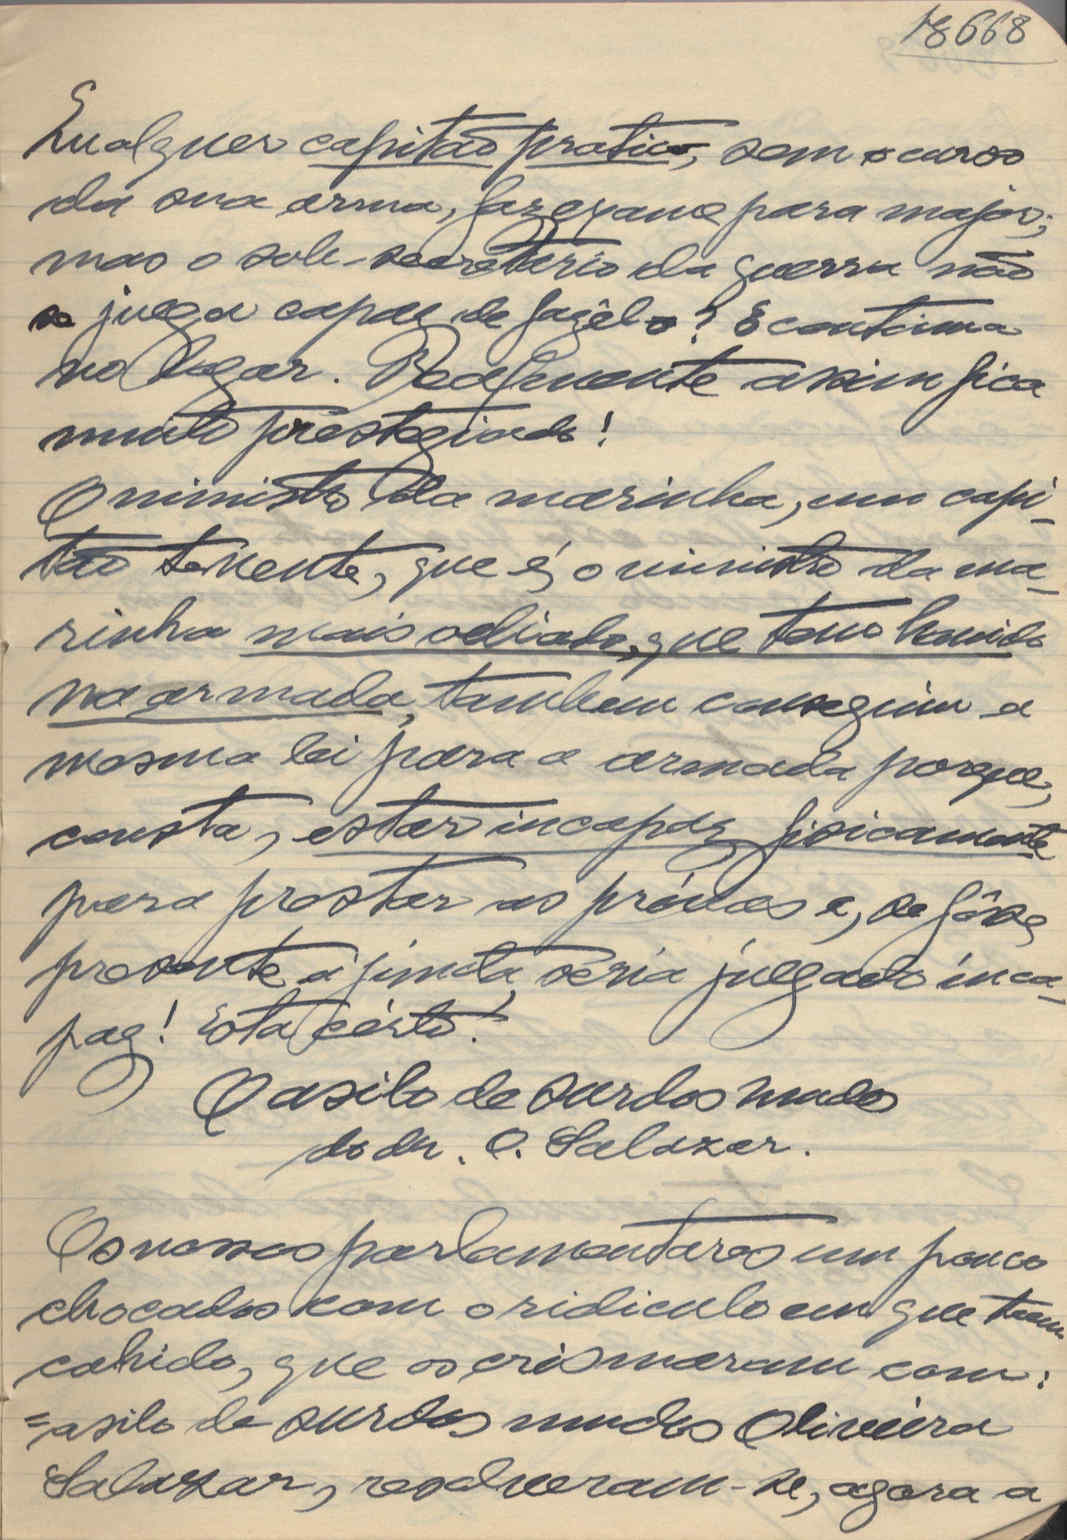 18668
Qualquer capitão pratico, sem o curso
da sua arma, faz exame para major;
mas o sub-secretério da guerra não
se julga capaz de fazêl-o? E continua
no logar. Realmente assim fica
muito prestegiado!
O ministro da marinha, um capi-
tão tenente, que é, o ministro da ma-
rinha mais odiado, que tem havido
na armada, tambem conseguiu a
mesma lei para a armada porque,
consta, estar incapaz fisicamente
para prestar as próvas e, se fôsse
presente á junta, séria julgado inca-
paz! Está cérto!
O asilo de surdos mudos
do dr. O. Salazar.
Os nossos parlamentares um pouco
chocados com o ridiculo em que teem
cahido, que os crismaram com:
=asilo de surdos mudos Olivéira
Salazar, resolveram-se, agora a